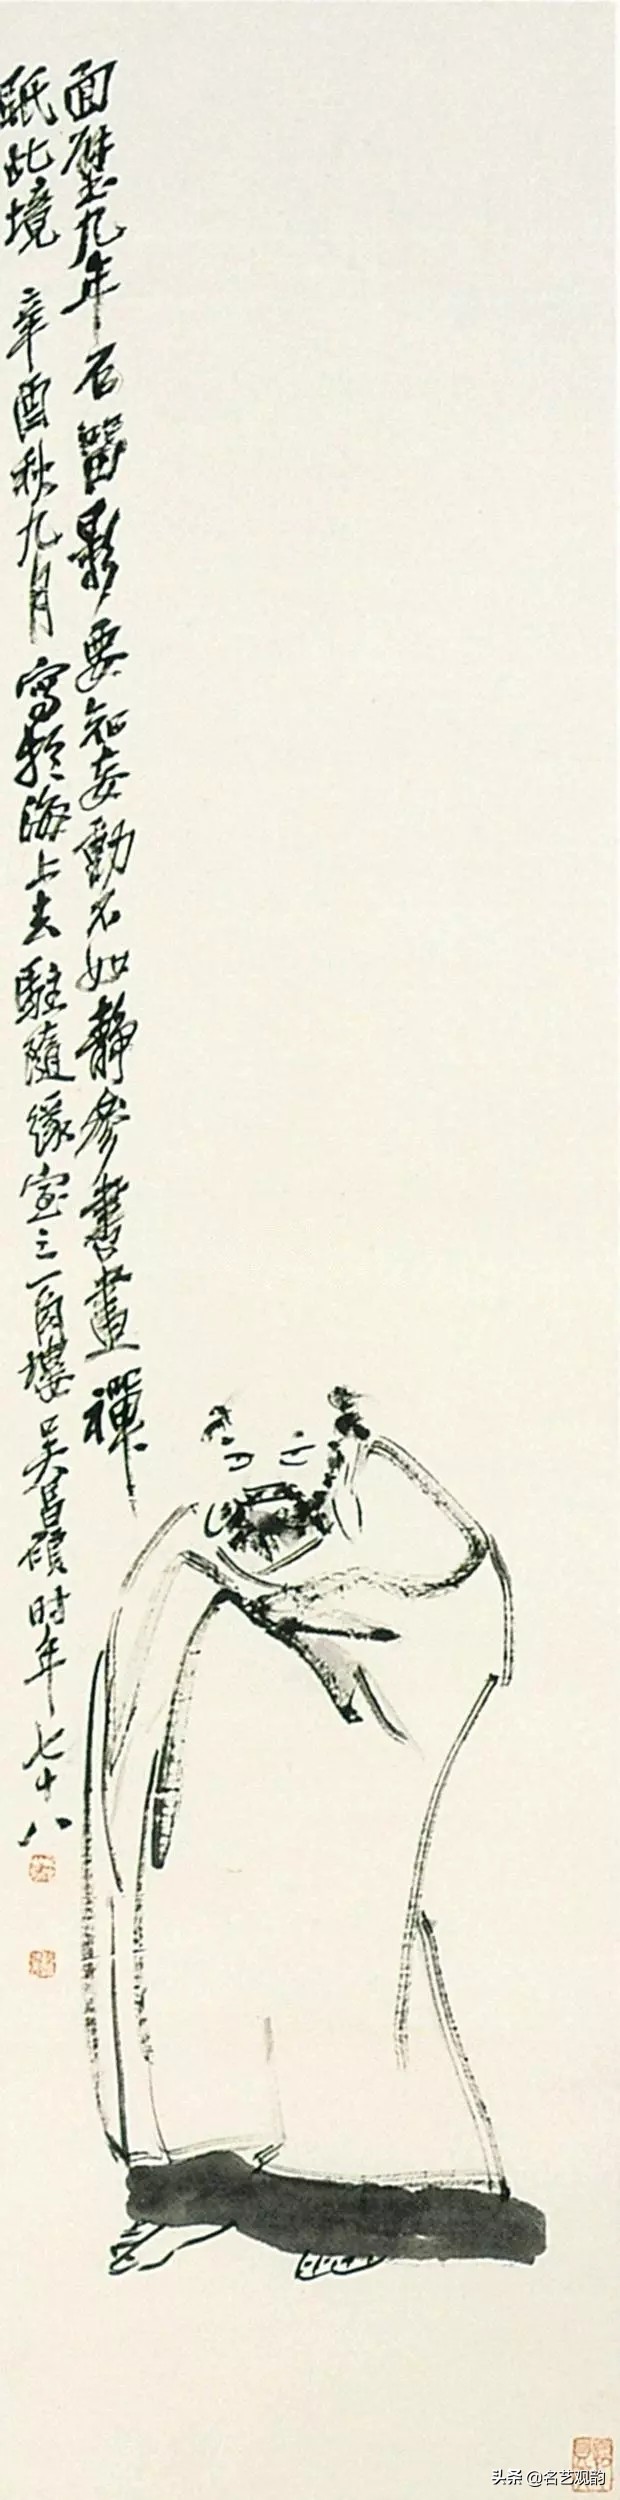 面壁九年石留影要知妄動不如靜參書畫禪
此境 辛酉秋九月寫於海上去駐隨緣室之一角樓吳昌碩时年七十八
头条 @名艺观韵